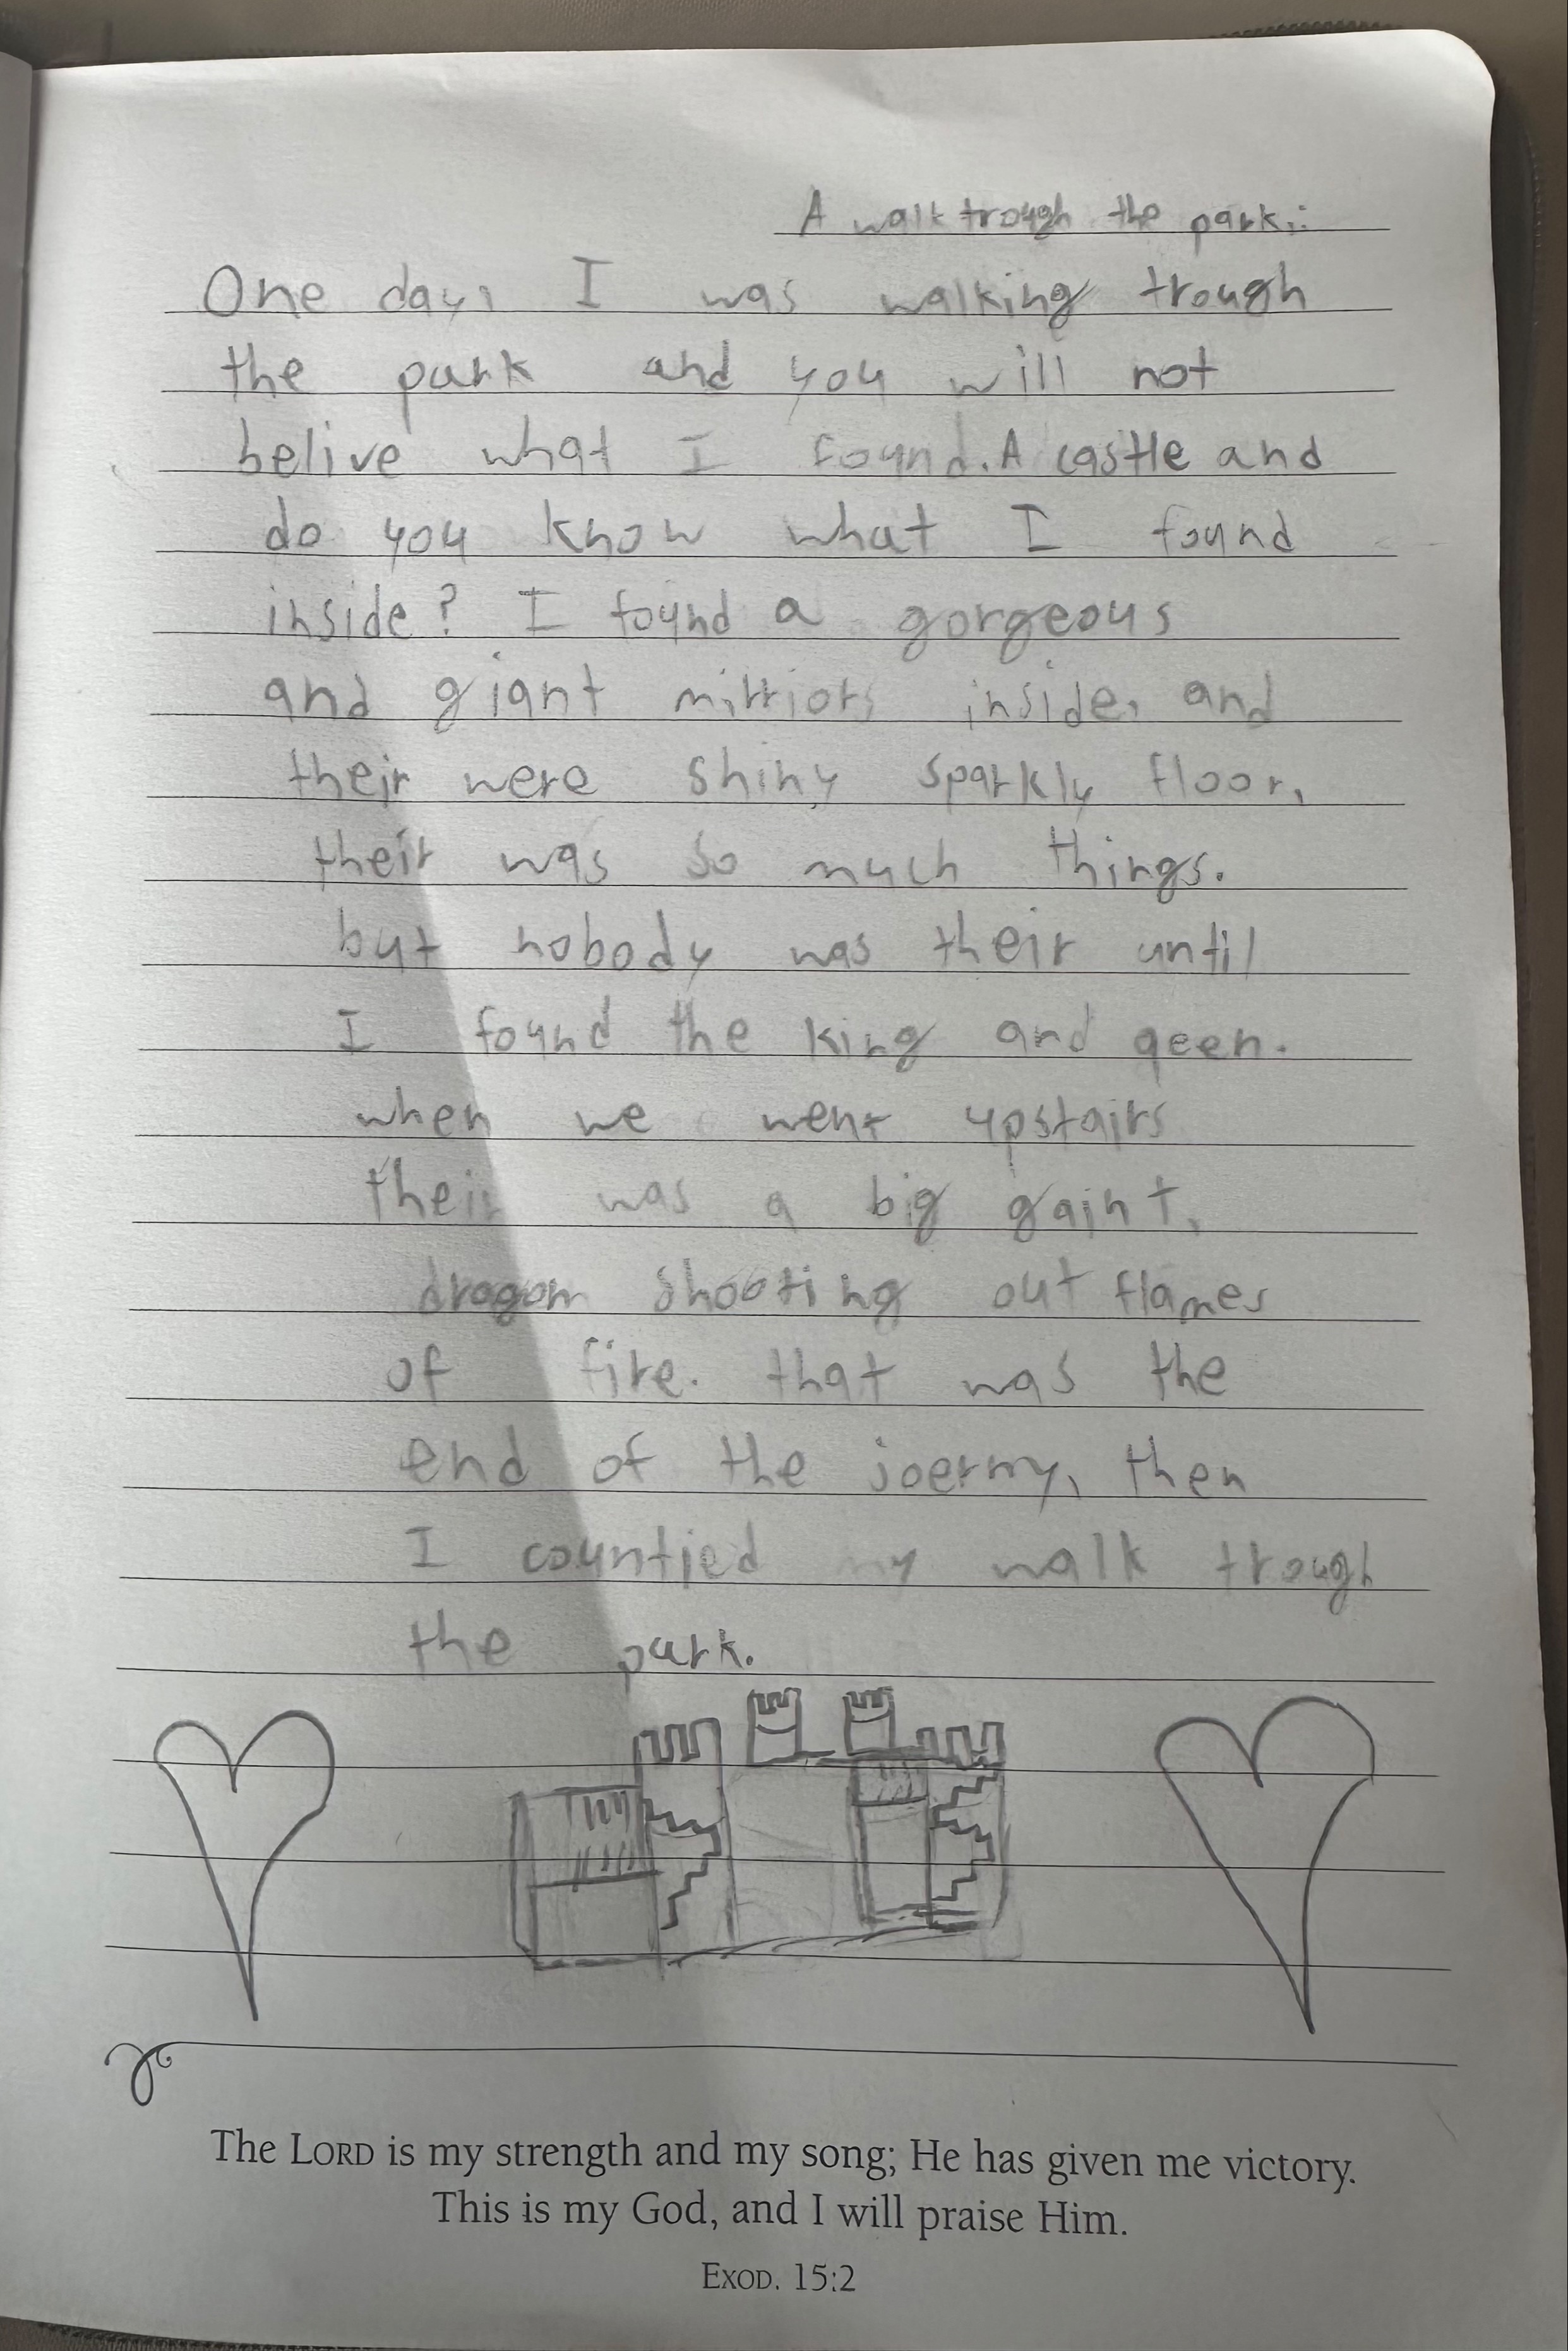 A walk trough the park:
One day, I was walking trough
the park and you will not
belive what I found. A castle and
do you know what I found
inside? I found a gorgeous
and giant mirriors inside, and
their were shiny sparkly floor,
their was so much things.
but nobody was their until
I found the king and qeen.
when we went upstairs
their was a big gaint,
dragon shooting out flames
of fire. that was the
end of the joermy, then
I countied my walk trough
the park.
The LORD is my strength and my song; He has given me victory.
This is my God, and I will praise Him.
EXOD. 15:2